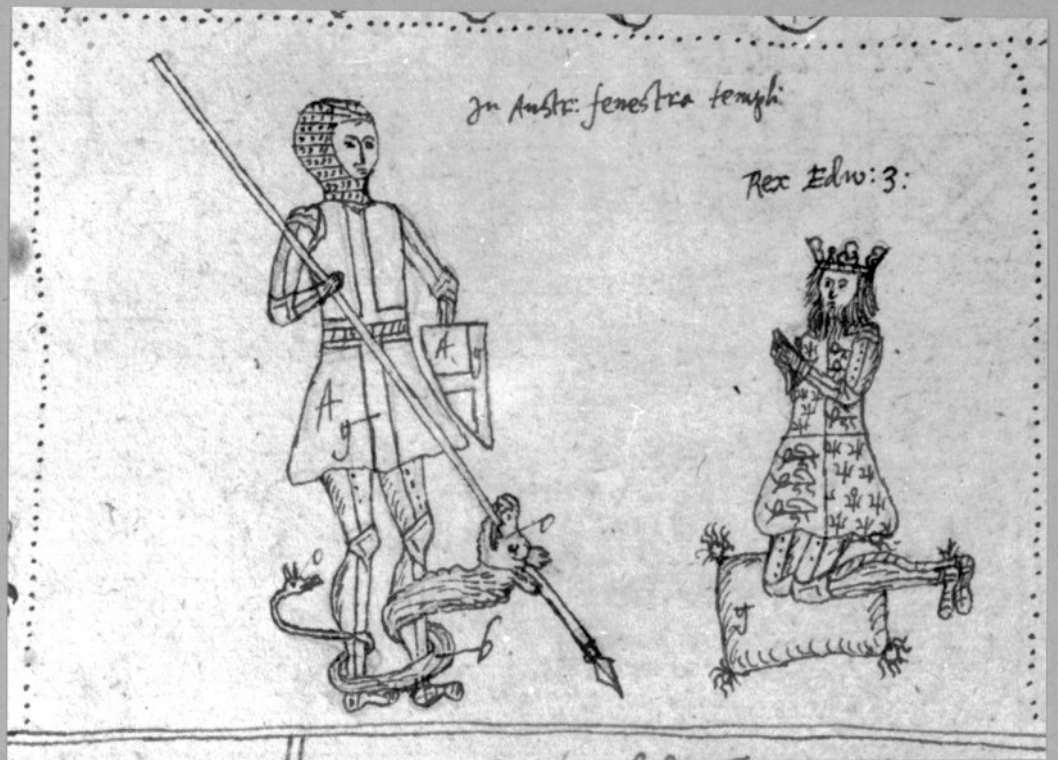 In Austr: fenestra templi
Rex Edw: 3:
A
g
A
g
g